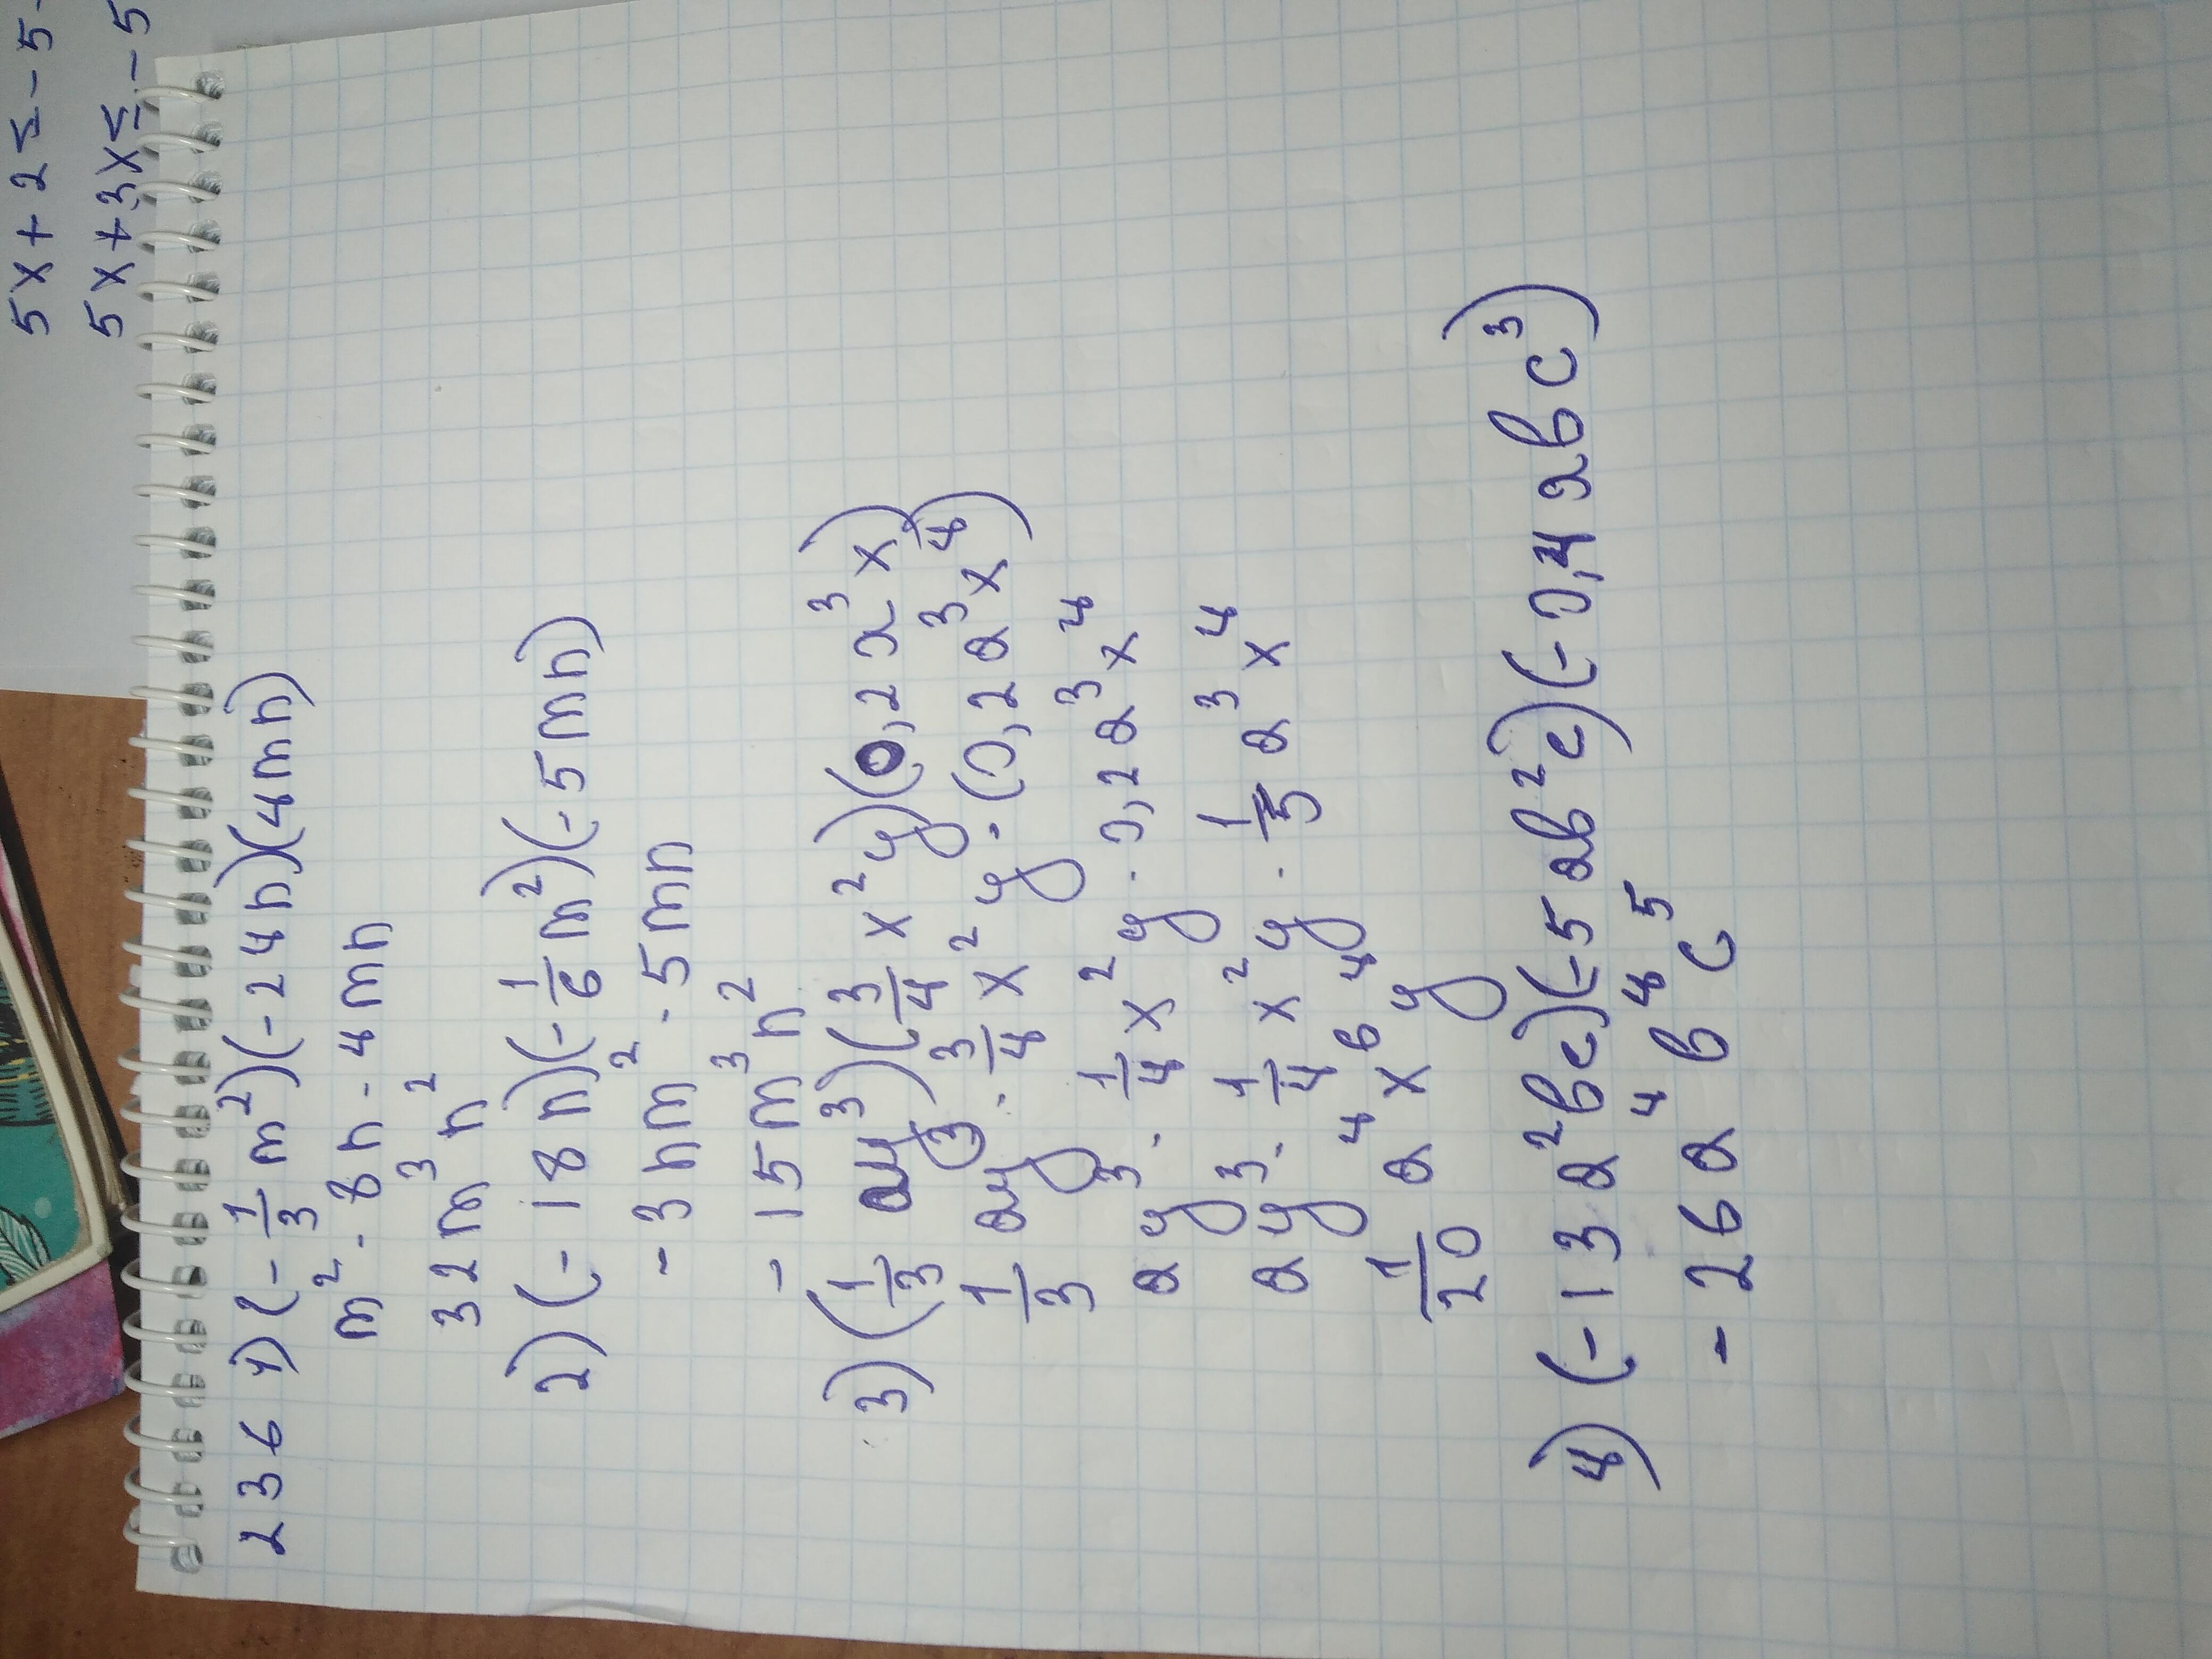 5x + 2 ≤ - 5
5x + 3x ≤ - 5
236 1) (- 1/3 m²)(-24n)(4mn)
m² · 8n · 4mn
32m³n²
2) (-18n)(- 1/6 m²)(-5mn)
- 3nm² · 5mn
- 15m³n²
3) (1/3 ay³)(3/4 x²y)(0,2a³x⁴)
1/3 ay³ · 3/4 x²y · (0,2a³x⁴)
ay³ · 1/4 x²y · 0,2a³x⁴
ay³ · 1/4 x²y · 1/5 a³x⁴
1/20 a⁴x⁶y⁴
4) (-13a²bc)(-5ab²c)(-0,4abc³)
- 26a⁴b⁴c⁵